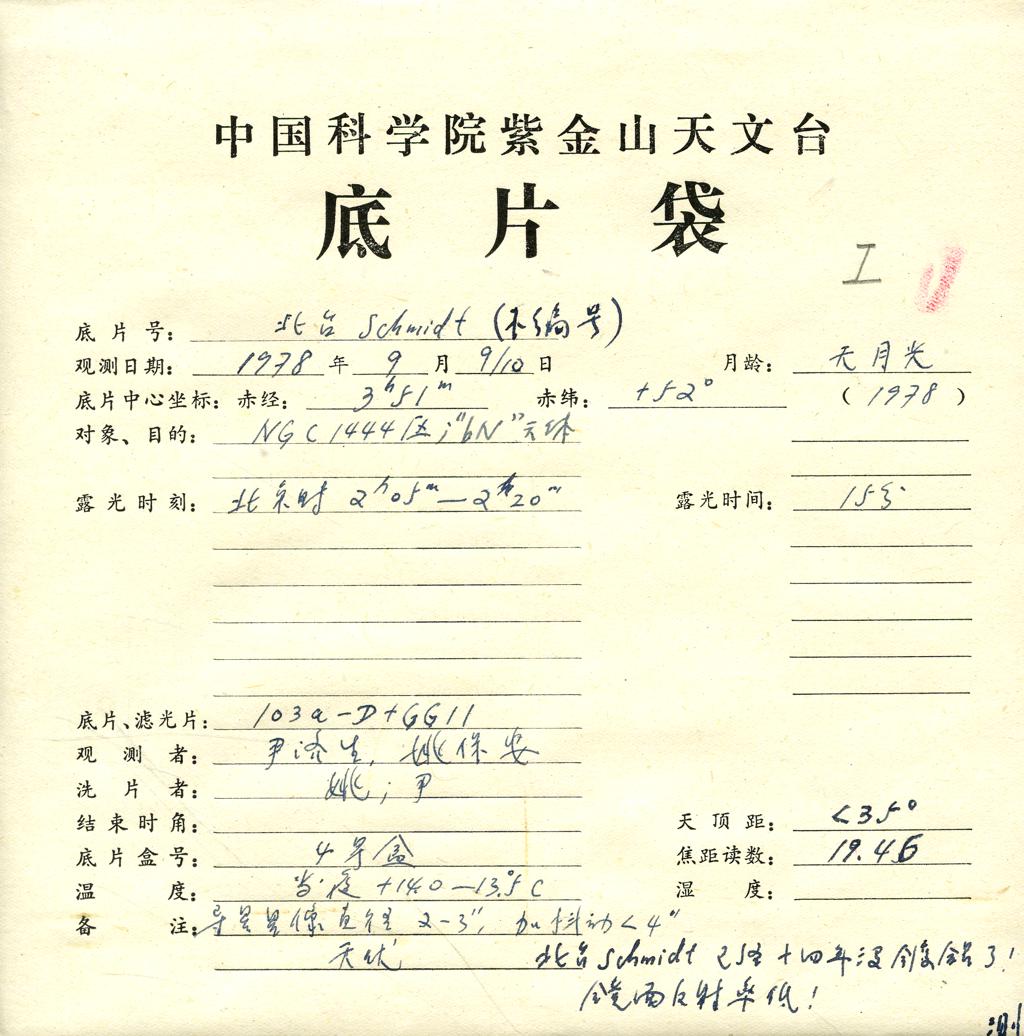 中国科学院紫金山天文台
底片袋
I
底片号: 北台 Schmidt (不编号)
观测日期: 1978 年 9 月 9/10 日 月龄: 无月光
底片中心坐标: 赤经: 3h51m 赤纬: +52° (1978)
对象、目的: NGC 1444区;"bN"天体
露光时刻: 北京时 2h05m—2h20m 露光时间: 15分
底片、滤光片: 103a-D+GG11
观测者: 尹济生, 姚保安
洗片者: 姚; 尹
结束时角: 天顶距: <35°
底片盒号: 4号盒 焦距读数: 19.46
温度: 当夜 +14.0—13.5°C 湿度:
备注: 导星星像直径 2-3", 加抖动<4"
天优 北台Schmidt 已经十四年没镀铝了!
镜面反射率低!
测